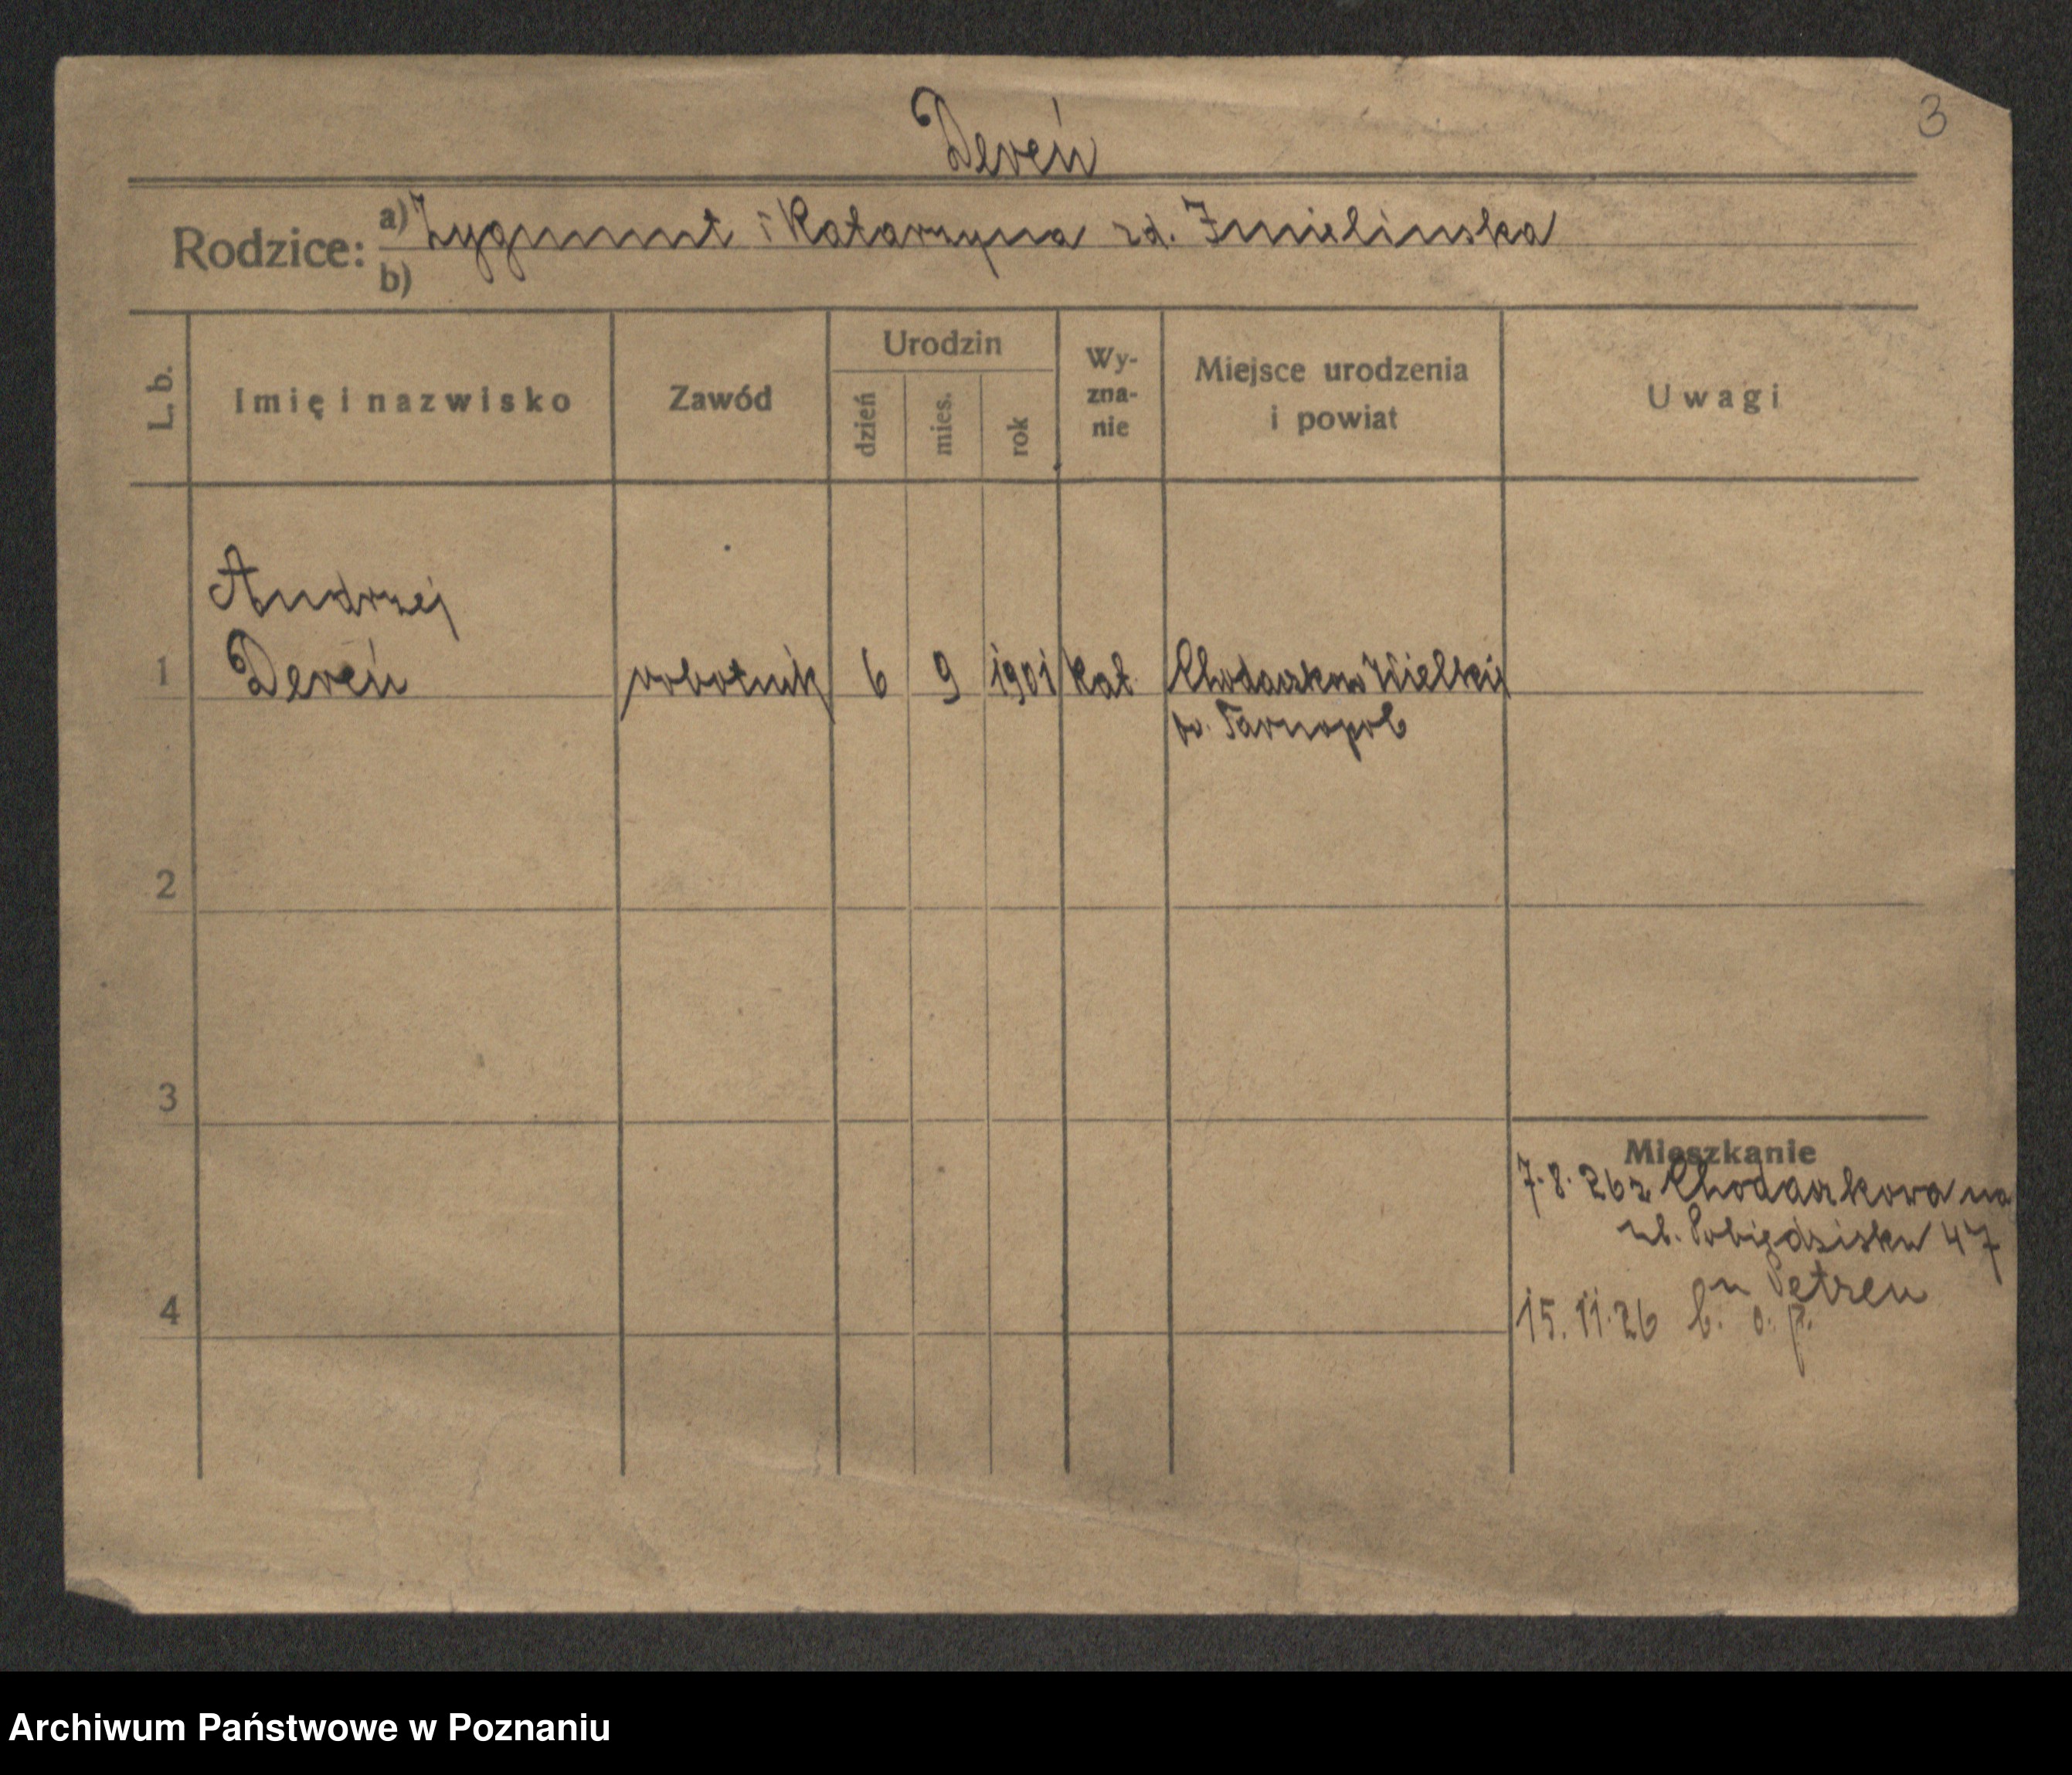 3
Dereń
Rodzice: a) Zygmunt i Katarzyna zd. Imielinska
b)
L. b. Imię i nazwisko Zawód Urodzin dzień mies. rok Wy-zna-nie Miejsce urodzenia i powiat Uwagi
Andrzej
1 Dereń robotnik 6 9 1901 kat Chodaczków Wielki
p. Tarnopol
2
3
Mieszkanie
7.8.26 z Chodaczkowa na
ul. Pobiedziska 47
u Petzen
4
15.11.26 b. o. p.
Archiwum Państwowe w Poznaniu